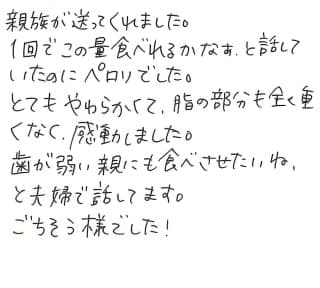 親族が送ってくれました。
1回でこの量食べれるかなぁ、と話して
いたのにペロリでした。
とてもやわらかくて、脂の部分も全く重
くなく、感動しました。
歯が弱い親にも食べさせたいね、
と夫婦で話してます。
ごちそう様でした!